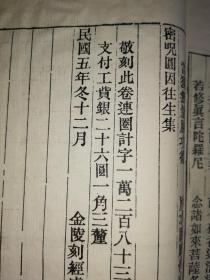 密呪圓因往生集
敬刻此卷連圈計字一萬二百八十三
支付工貲銀二十六圓一角三釐
民國五年冬十二月
金陵刻經
若修眞言陀羅尼
念諸如來菩薩